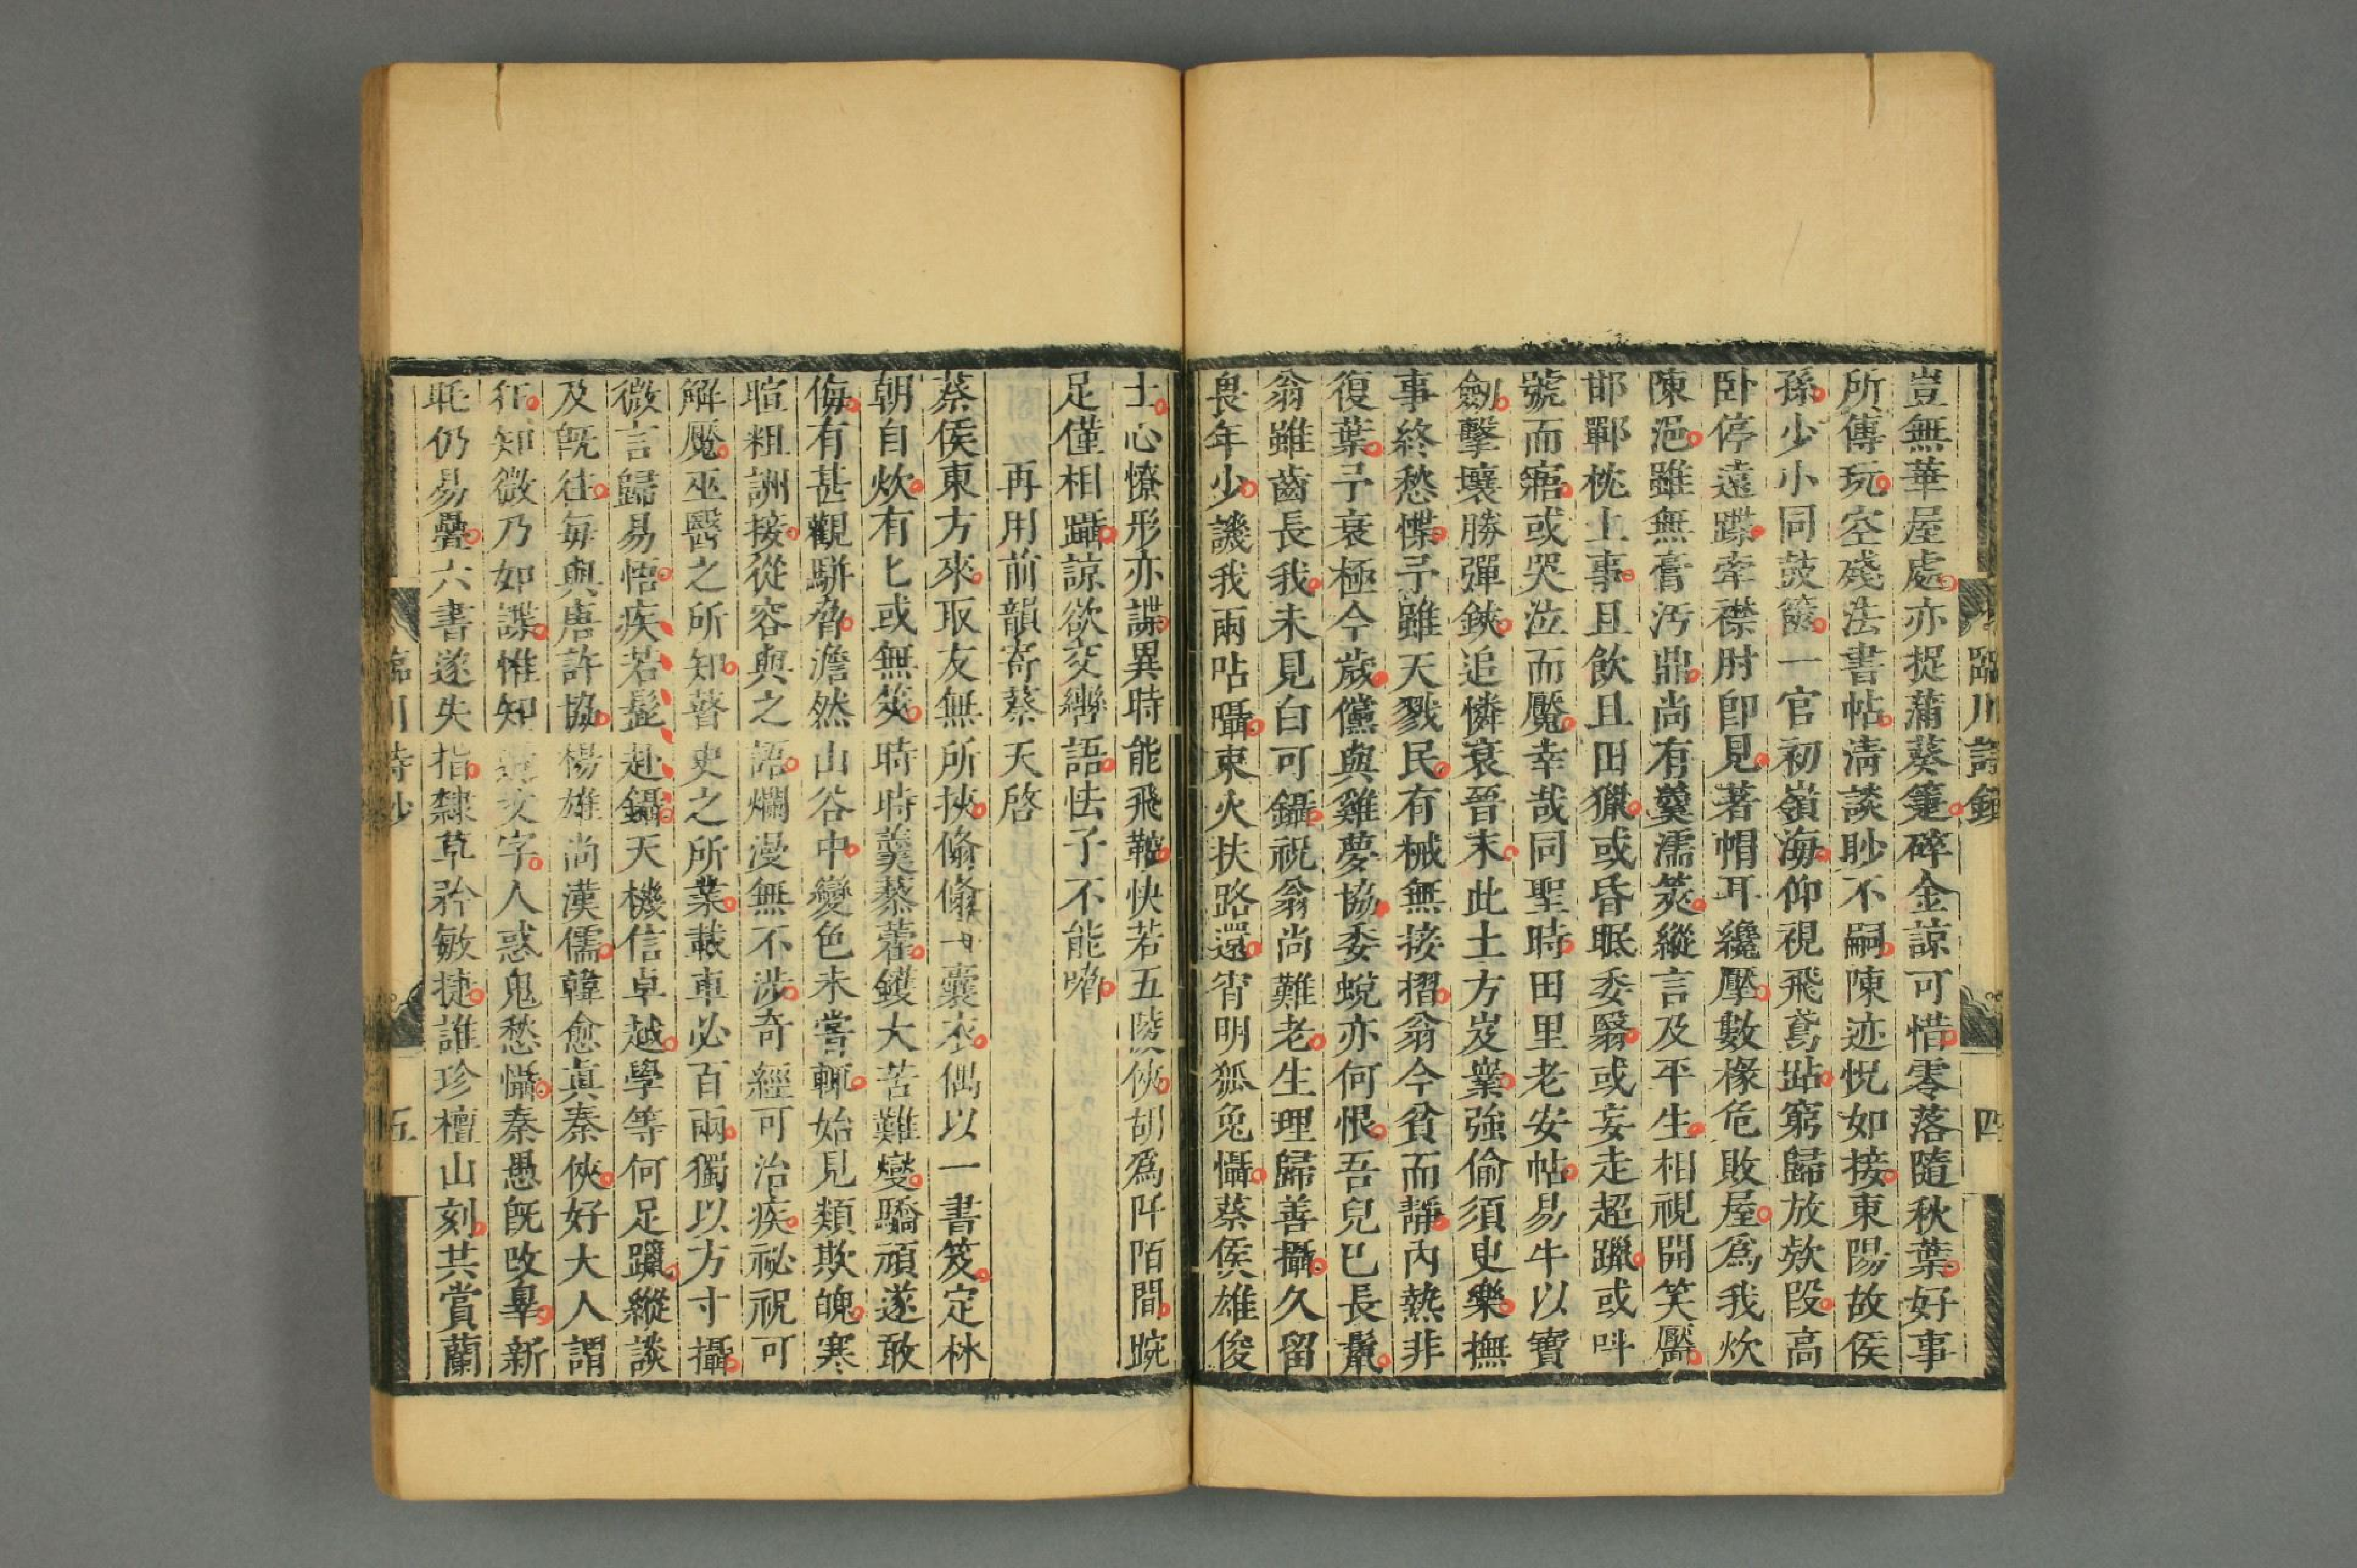 臨川詩鈔 四
豈無華屋處亦捉蒲葵箑碎金諒可惜零落隨秋葉好事
所傳玩空殘法書帖淸談眇不嗣陳迹怳如接東陽故侯
孫少小同鼓篋一官初嶺海仰視飛鳶跕窮歸放欵段高
卧停遠蹀牽襟肘卽見著帽耳纔壓數椽危敗屋爲我炊
陳浥雖無膏汚鼎尚有羹濡筴縱言及平生相視開笑靨
邯鄲枕上事且飮且田獵或昏眠委翳或妄走超躐或呌
號而寤或哭泣而魘幸哉同聖時田里老安帖易牛以寶
劒擊壤勝彈鋏追憐衰晉末此土方岌嶪強偷須臾樂撫
事終愁惵予雖天戮民有械無接摺翁今貧而靜內熱非
復葉予衰極今歲儻與雞夢協委蛻亦何恨吾兒巳長鬣
翁雖齒長我未見白可鑷祝翁尚難老生理歸善攝久留
畏年少譏我兩呫囁束火扶路還宵明狐兔懾蔡侯雄俊
士心憭形亦諜異時能飛鞚快若五陵俠胡爲阡陌間踠
足僅相躡諒欲交轡語怯子不能嗋
再用前韻寄蔡天啓
蔡侯東方來取友無所挾翛翛一囊衣偶以一書笈定林
朝自炊有匕或無筴時時羹藜藿鑊大苦難燮驕頑遂敢
侮有甚觀駢脅澹然山谷中變色未嘗輒始見類欺魄寒
暄粗詶接從容與之語爛漫無不涉奇經可治疾祕祝可
解魘巫醫之所知瞽史之所業載車必百兩獨以方寸攝
微言歸易悟疾若髭赴鑷天機信卓越學等何足躐縱談
及旣往每與唐許協楊雄尚漢儒韓愈眞秦俠好大人謂
狂知微乃如諜惟知文字人惑鬼愁懾秦愚旣改辠新
眊仍易疊六書遂失指隸草矜敏捷誰珍檀山刻共賞蘭
臨川詩鈔 五